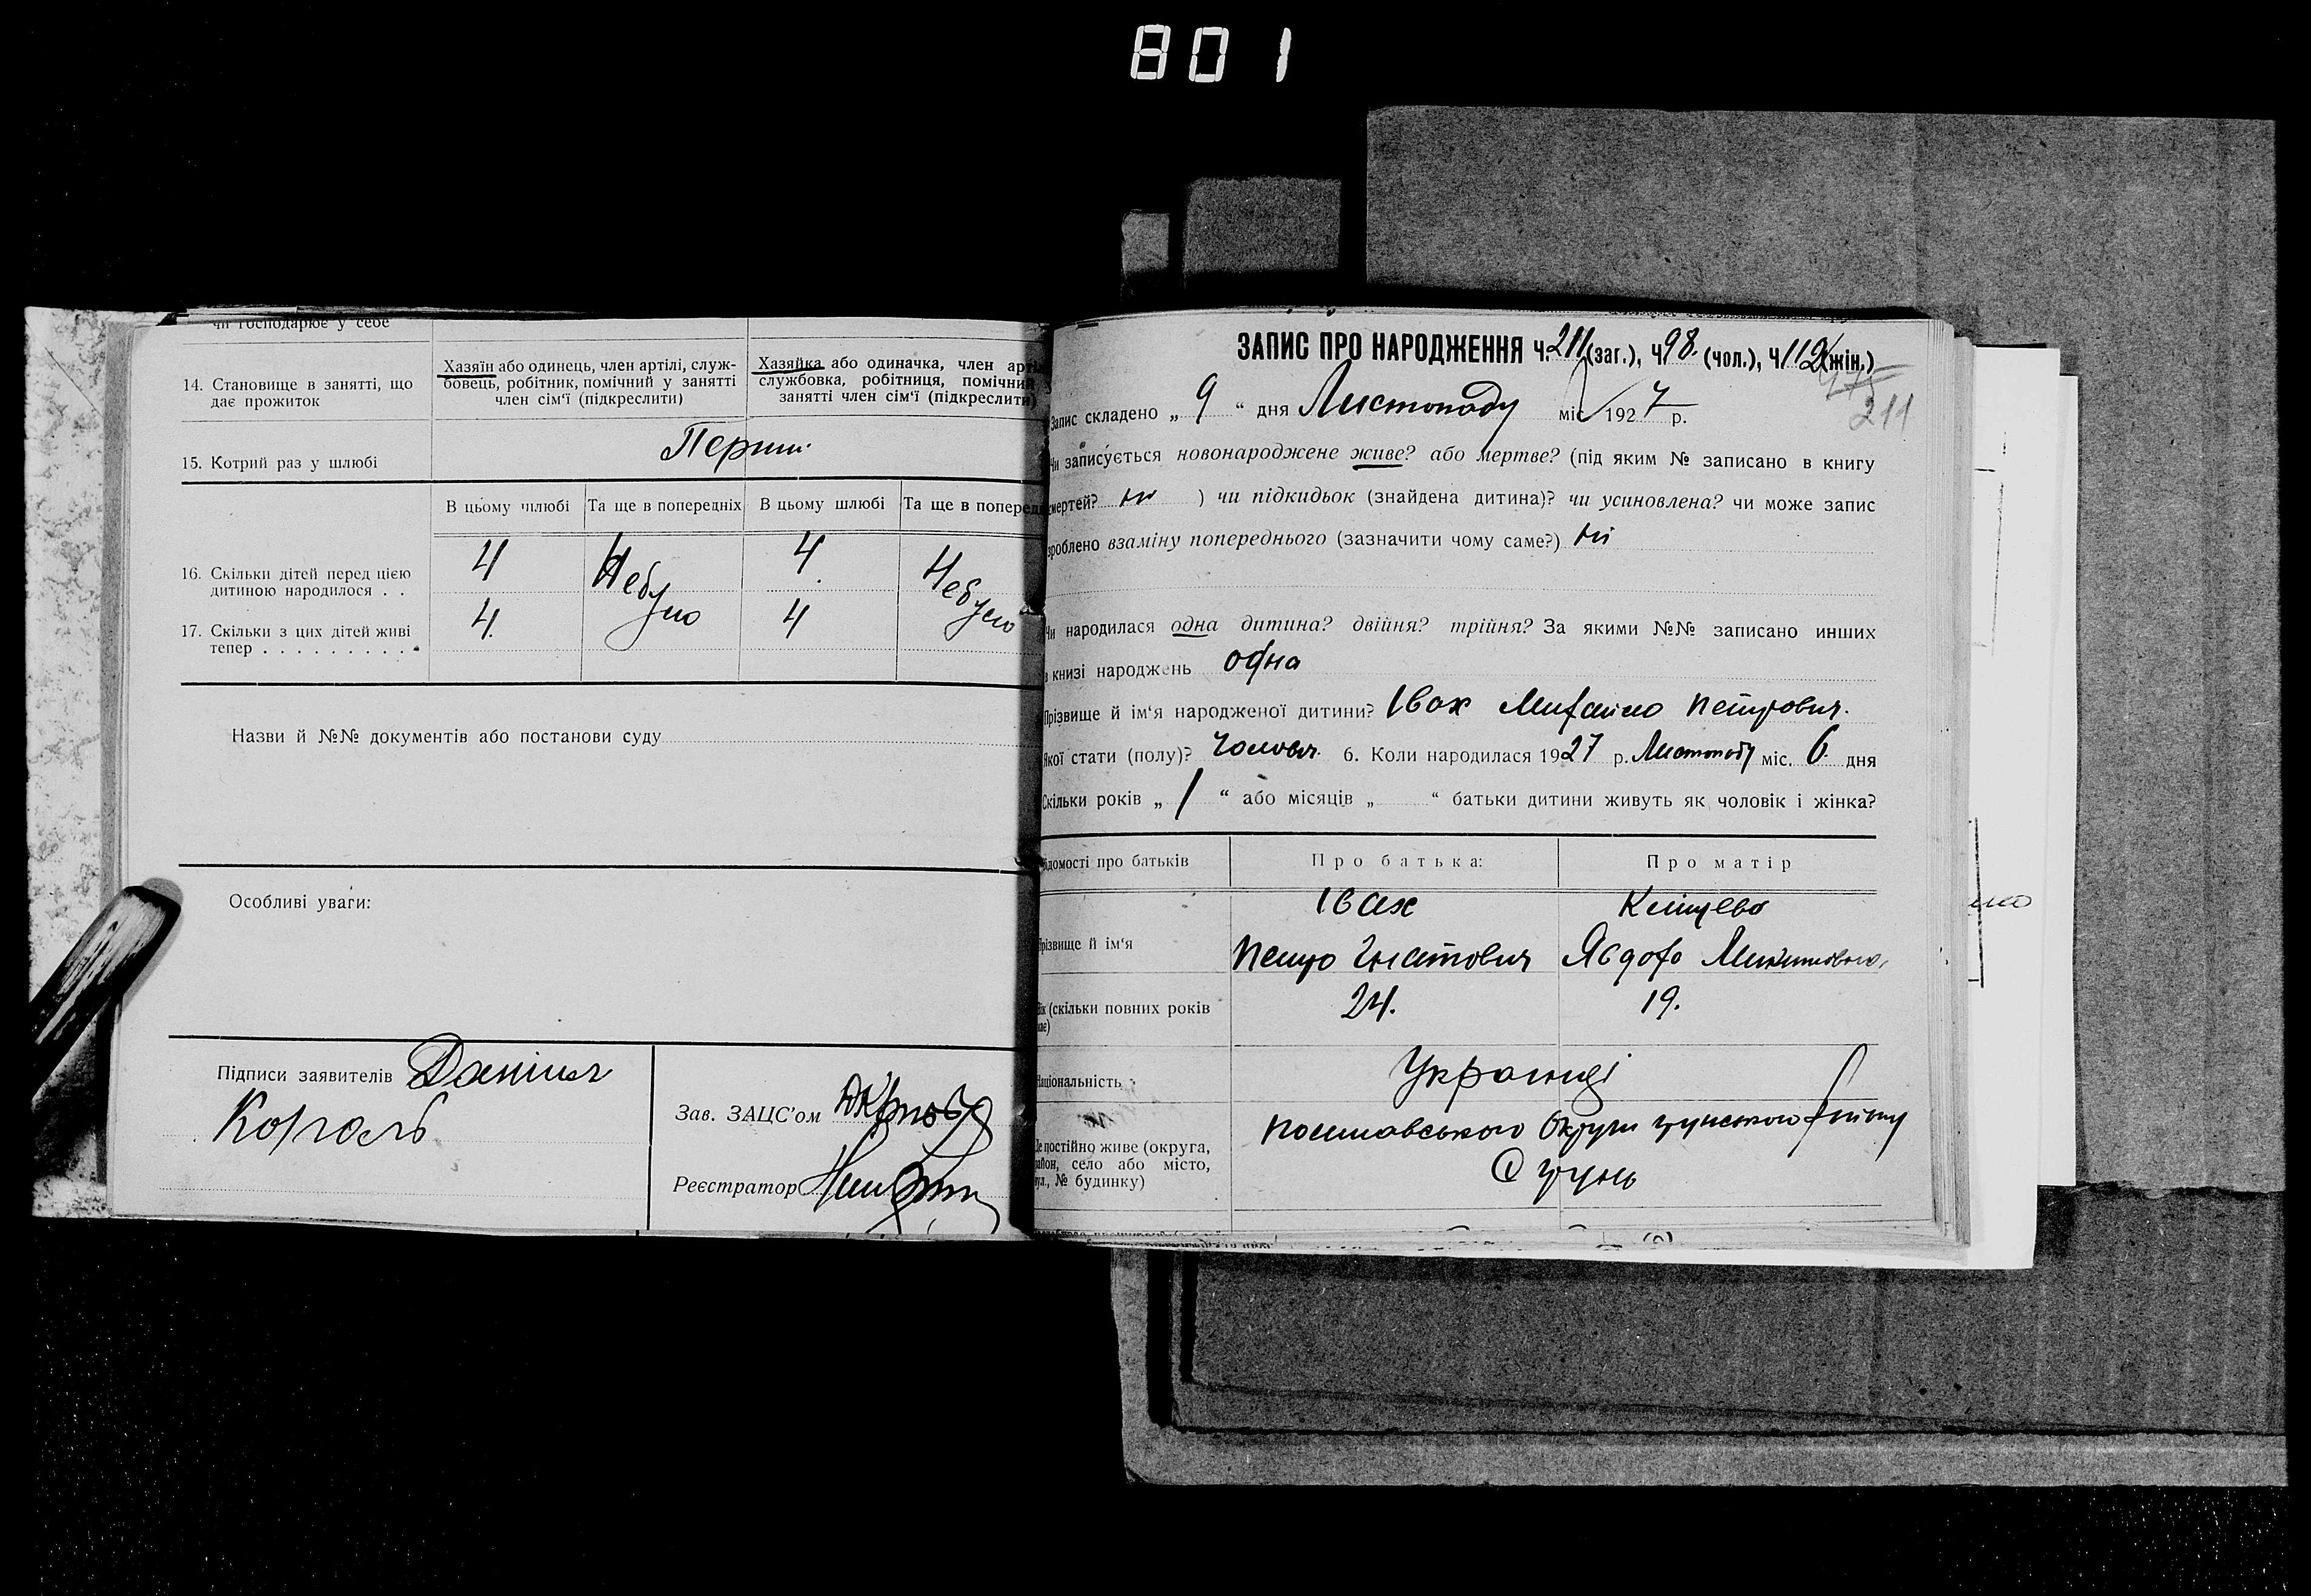 801
чи господарює у себе
14. Становище в занятті, що дає прожиток
Хазяїн або одинець, член артілі, служ-
бовець, робітник, помічний у занятті
член сім'ї (підкреслити)
Хазяйка або одиначка, член арті
службовка, робітниця, помічний
занятті член сім'ї (підкреслити)
15. Котрий раз у шлюбі
Перший
В цьому шлюбі Та ще в попередніх В цьому шлюбі Та ще в попере
16. Скільки дітей перед цією
дитиною народилося . .
4 Небуло 4 Небуло
17. Скільки з цих дітей живі
тепер . . . . . . . . . .
4. 4
Назви й №№ документів або постанови суду
Особливі уваги:
Підписи заявителів Данило
Король
Зав. ЗАЦС'ом
Реєстратор
ЗАПИС ПРО НАРОДЖЕННЯ Ч. 211 (заг.), Ч 98. (чол.), Ч 112 (жін.)
211
Запис складено „ 9 “ дня Листопаду міс 1927 р.
Чи записується новонароджене живе? або мертве? (під яким № записано в книгу
смертей? ні ) чи підкидьок (знайдена дитина)? чи усиновлена? чи може запис
зроблено взаміну попереднього (зазначити чому саме?) ні
Чи народилася одна дитина? двійня? трійня? За якими №№ записано инших
в книзі народжень одна
Прізвище й ім'я народженої дитини? Івах Михайло Петрович.
Якої стати (полу)? Чоловіч. 6. Коли народилася 1927 р. Листопаду міс. 6. дня
Скільки років „ 1 “ або місяців „ “ батьки дитини живуть як чоловік і жінка?
ідомості про батьків Про батька: Про матір
Івах
Прізвище й ім'я
Петро Гнатович Явдоха Микитовна,
Вік (скільки повних років
має)
24. 19.
Національність
Українці
Де постійно живе (округа,
район, село або місто,
вул., № будинку)
Полтавського Округи Грунського району
С Грунь